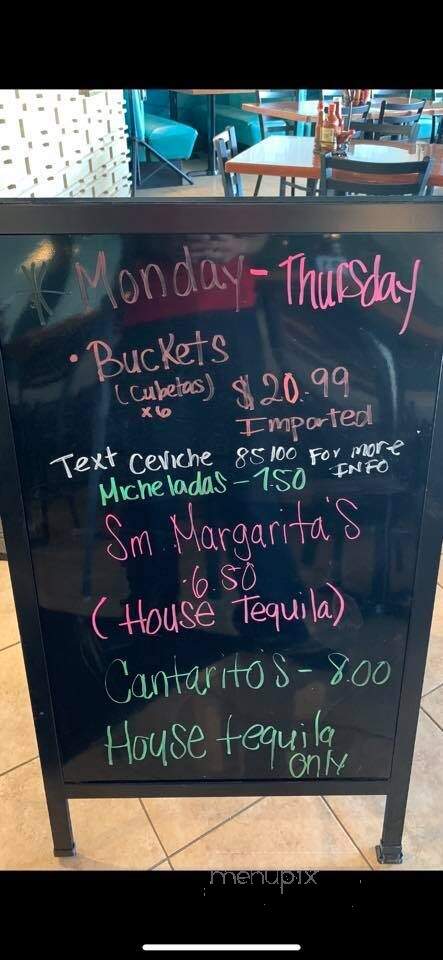 * Monday - Thursday
• Buckets
(Cubetas) $20.99
x6
Imported
Text Ceviche 85100 For more
INFO
Micheladas - 7.50
Sm. Margarita's
6.50
(House Tequila)
Cantarito's - 8.00
House tequila
only
menupix